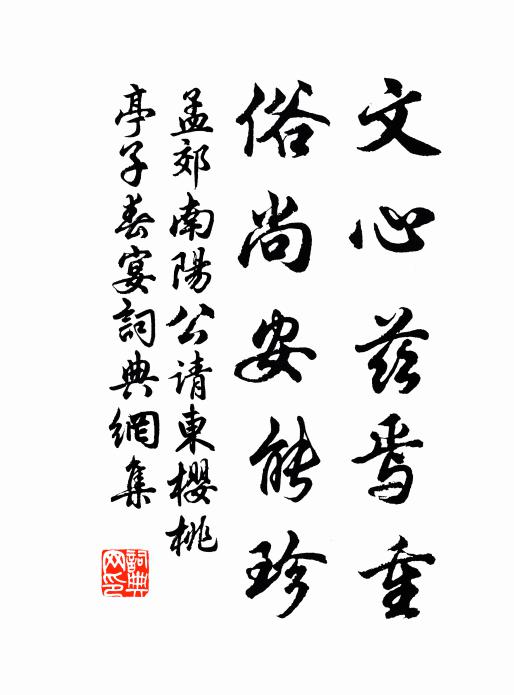 文心兹焉重
俗尚安能珍
孟郊南陽公请東櫻桃
亭子春宴詞典網集
詞典網印